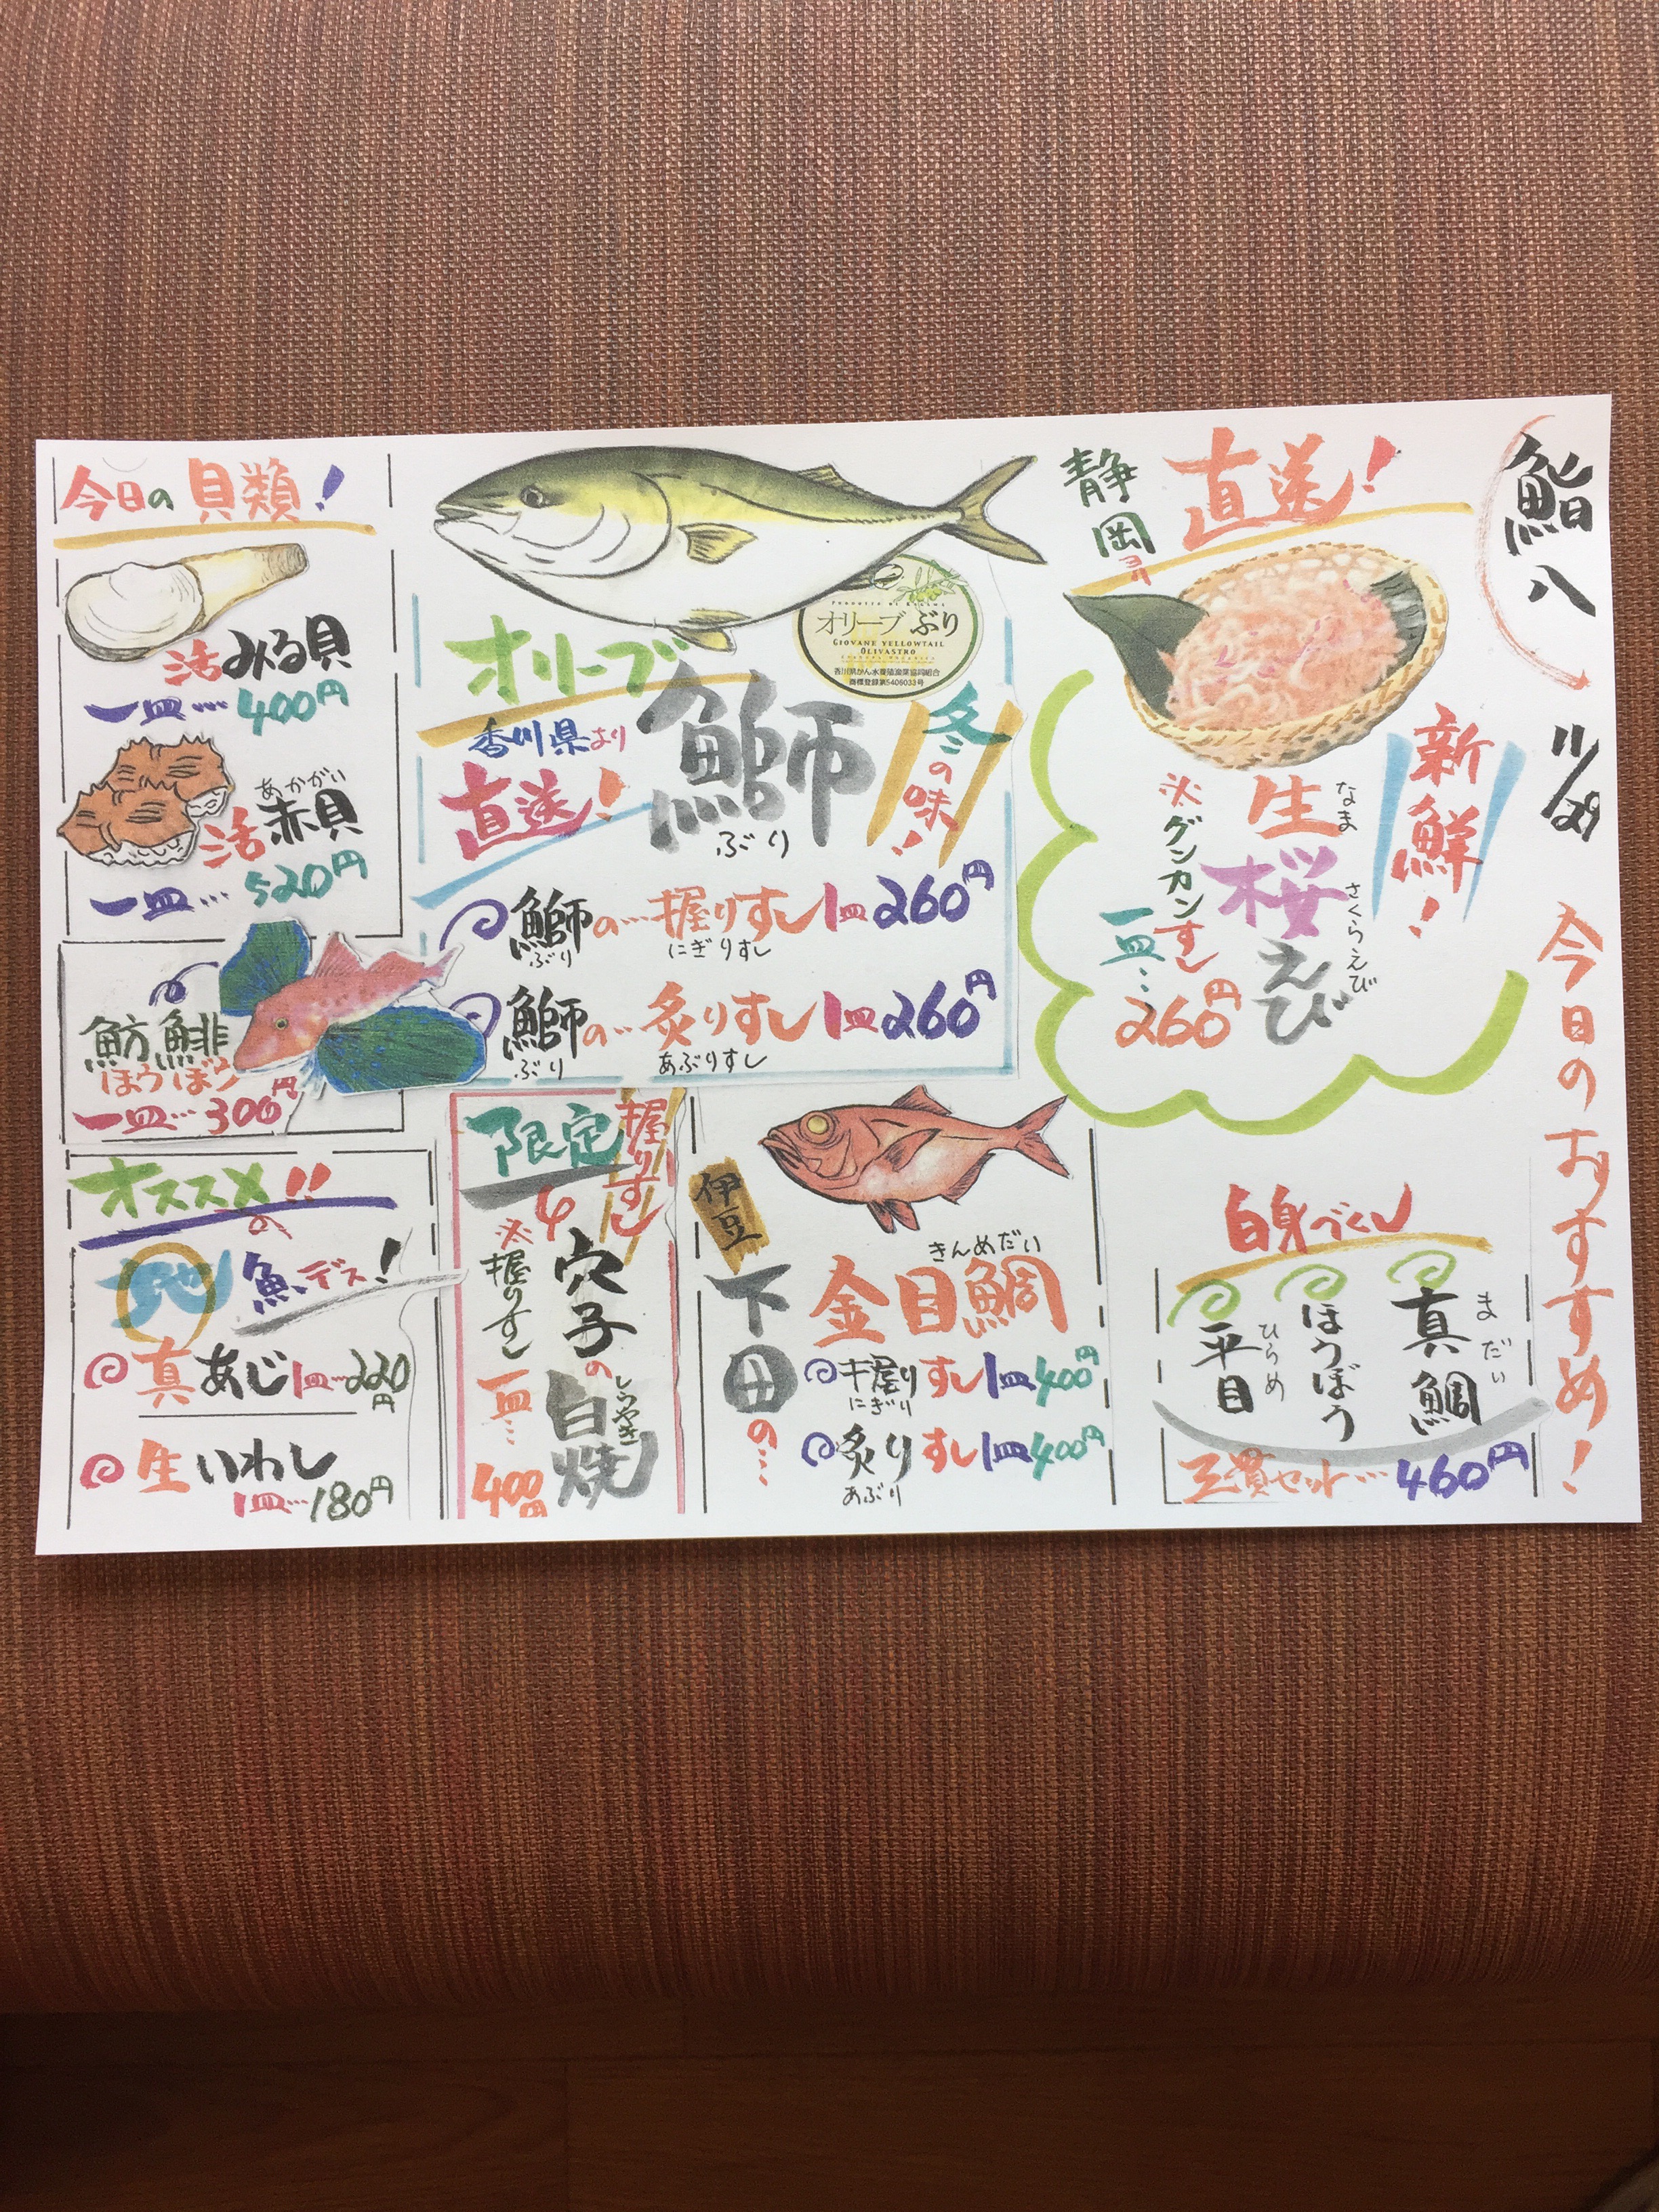 鮨八
11/29
今日のおすすめ!
静岡より
直送!
新鮮!
なま
生
さくらえび
桜えび
※グンカンすし
一皿…
260円
白身づくし
まだい
真鯛
ほうぼう
ひらめ
平目
三貫セット…460円
オリーブぶり
GIOVANE YELLOWTAIL
OLIVASTRO
香川県かん水養殖漁業協同組合
商標登録第5406033号
オリーブ
鰤
ぶり
香川県より
直送!
冬の味!
鰤の…握りすし1皿260円
ぶり にぎりすし
鰤の…炙りすし1皿260円
ぶり あぶりすし
伊豆
下田の…
きんめだい
金目鯛
握りすし1皿400円
にぎり
炙りすし1皿400円
あぶり
限定
握りすし
穴子の
しらやき
白焼
※握りすし
一皿…
400円
今日の貝類!
活みる貝
一皿…400円
あかがい
活赤貝
一皿…520円
魴鯡
ほうぼう
一皿…300円
オススメ!!
の
地魚デス!
真あじ1皿…220円
生いわし
1皿…180円